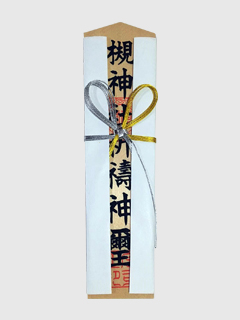 槻神社祈禱神璽